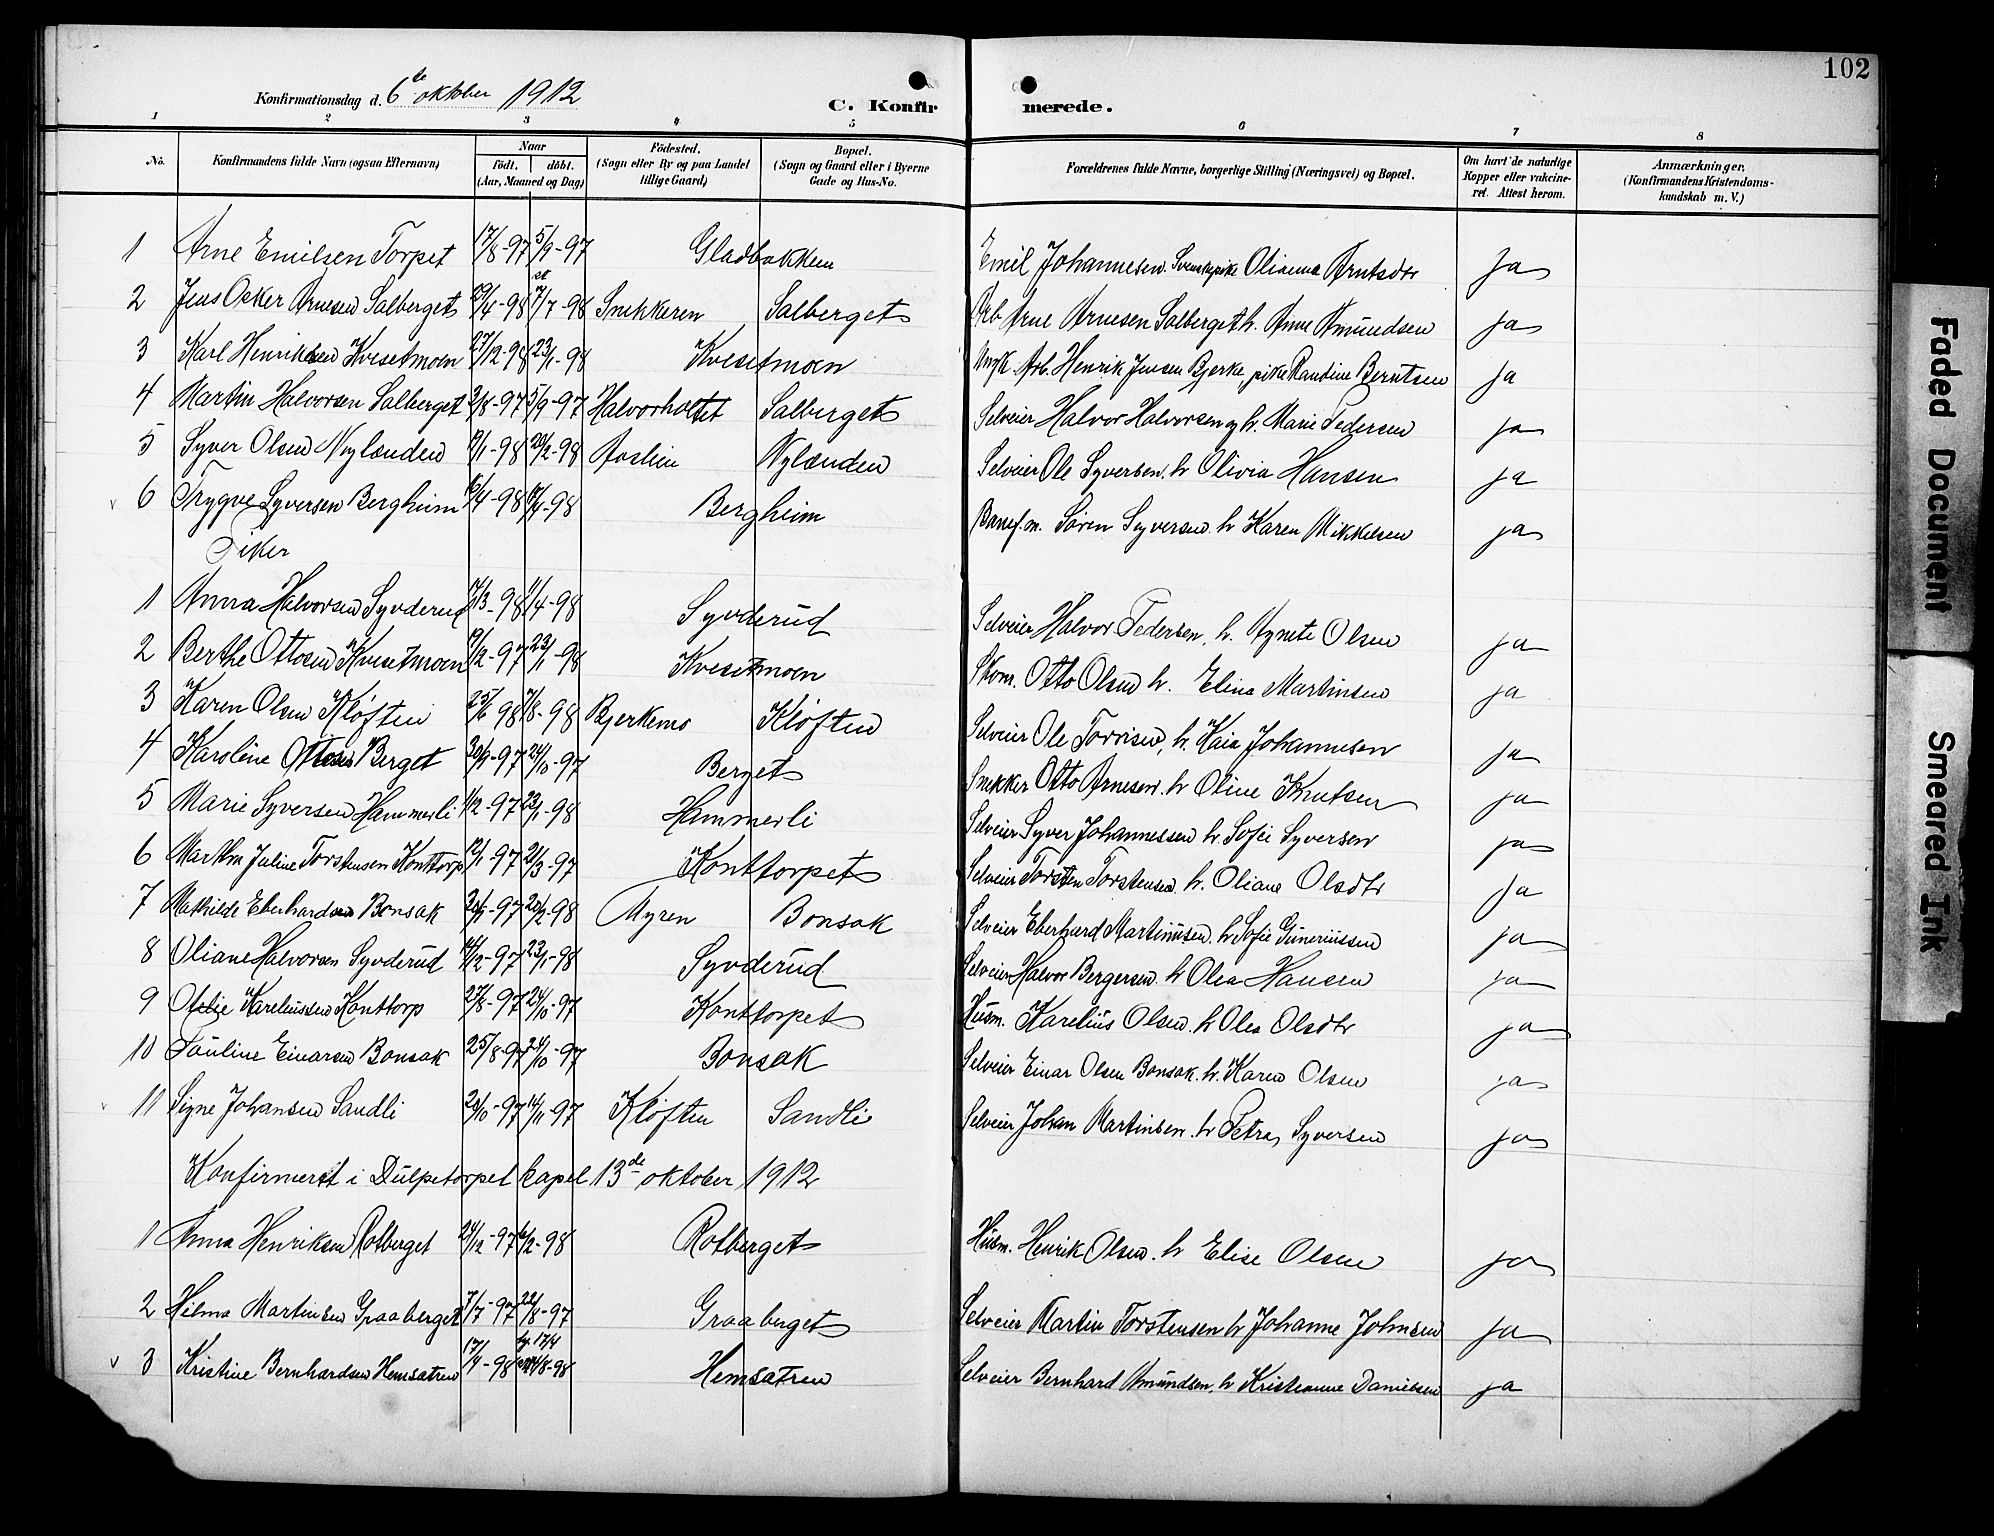 102
Konfirmationsdag d. 6te oktober 1912
C. Konfirmerede.
1 2 3 4 5 6 7 8
No.
Konfirmandens fulde Navn (ogsaa Efternavn)
Naar
födt. döbt.
(Aar, Maaned og Dag)
Födested.
(Sogn eller By og paa Landet tillige Gaard)
Bopæl.
(Sogn og Gaard eller i Byerne Gade og Hus-No.
Forældrenes fulde Navne, borgerlige Stilling (Næringsvei) og Bopæl.
Om havt de naturlige Kopper eller vakcineret. Attest herom.
Anmærkninger.
(Konfirmandens Kristendomskundskab m. V.)
1 Arne Emilsen Torpet 17/8-97 5/9-97 Gladbakken Emil Johannesen. Svenskpike Olianna Arntsdtr Ja
2 Jens Osker Arnesen Salberget 29/4-98 7/7-98 Snekkeren Salberget Arb Arne Arnesen Salberget h. Anne Amundsen ja
3 Karl Henriksen Kvesetmoen 27/12-98 23/1-98 Kvesetmoen Ungk. Arb. Henrik Jensen Bjerke, pike Randine Berntsen ja
4 Martin Halvorsen Salberget 2/8-97 5/9-97 Halvorholtet Salberget Selveier Halvor Halvorsen og h. Marie Pedersen ja
5 Syver Olsen Nylænden 12/1-98 20/2-98 Aoslien Nylænden Selveier Ole Syversen. h Olivia Hansen ja
v 6 Trygve Syversen Bergheim 10/4-98 17/4-98 Bergheim Banef.m. Søren Syversen h Karen Mikkelsen ja
Piker
1 Anna Halvorsen Syvderud 17/3-98 11/4-98 Syvderud Selveier Halvor Pedersen, h. Agnete Olsen ja
2 Berthe Ottosen Kvesetmoen 19/12-97 23/1-98 Kvesetmoen Skom. Otto Olsen h. Elina Martinsen ja
3 Karen Olsen Kløften 25/6 98 7/8-98 Bjerkemo Kløften Selveier Ole Torvisen, h. Kaia Johannesen ja
4 Karoline Ottosen Berget 30/9-97 24/10-97 Berget Snekker Otto Arnesen. h Oline Knutsen ja
5 Marie Syversen Hammerli 1/12-97 23/1-98 Hammerli Selveier Syver Johannessen h. Sofie Syversen ja
6 Martha Juline Torstensen Konttorp 12/1-97 21/3-97 Konttorpet Selveier Torsten Torstensen h. Oliane Olsdtr Ja
7 Mathilde Eberhardsen Bonsak 30/9-97 20/2-98 Myren Bonsak Selveier Eberhard Martinusen. h Sofie Guneriussen ja
8 Oliane Halvorsen Syvderud 14/12-97 23/1-98 Syvderud Selveier Halvor Bergersen h Olea Hansen ja
9 Otelie Kareliussen Konttorp 27/8-97 24/10-97 Konttorpet Husm. Karelius Olsen. h Olea Olsdtr ja
10 Pauline Einarsen Bonsak 25/8-97 24/10-97 Bonsak Selveier Einar Olsen Bonsak. h. Karen Olsen ja
v 11 Signe Johansen Sandli 20/10-97 14/11-97 Kløften Sandlie Selveier Johan Martinsen. h Petra Syversen ja
Konfirmert i Dulpetorpet kapel 13de oktober 1912
1 Anna Henriksen Rotberget 24/12-97 6/2-98 Rotberget Husm. Henrik Olsen. h Elise Olsen ja
2 Hilma Martinsen Graaberget 7/7-97 22/8-97 Graaberget Selveier Martin Torstensen h Johanne Johnsen ja
v 3 Kristine Bernhardsen Hemsætren 17/4-98 17/4 14/8-98 Hemsætren Selveier Bernhard Amundsen, h Kristianne Danielsen ja
Faded Document
Smeared Ink